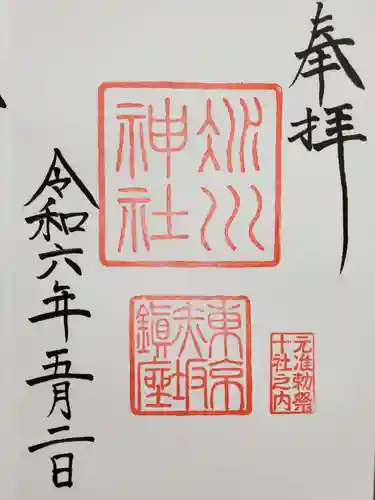 奉拝
氷川
神社
東京
赤坂
鎮座
元准勅祭
十社之内
令和六年五月二日